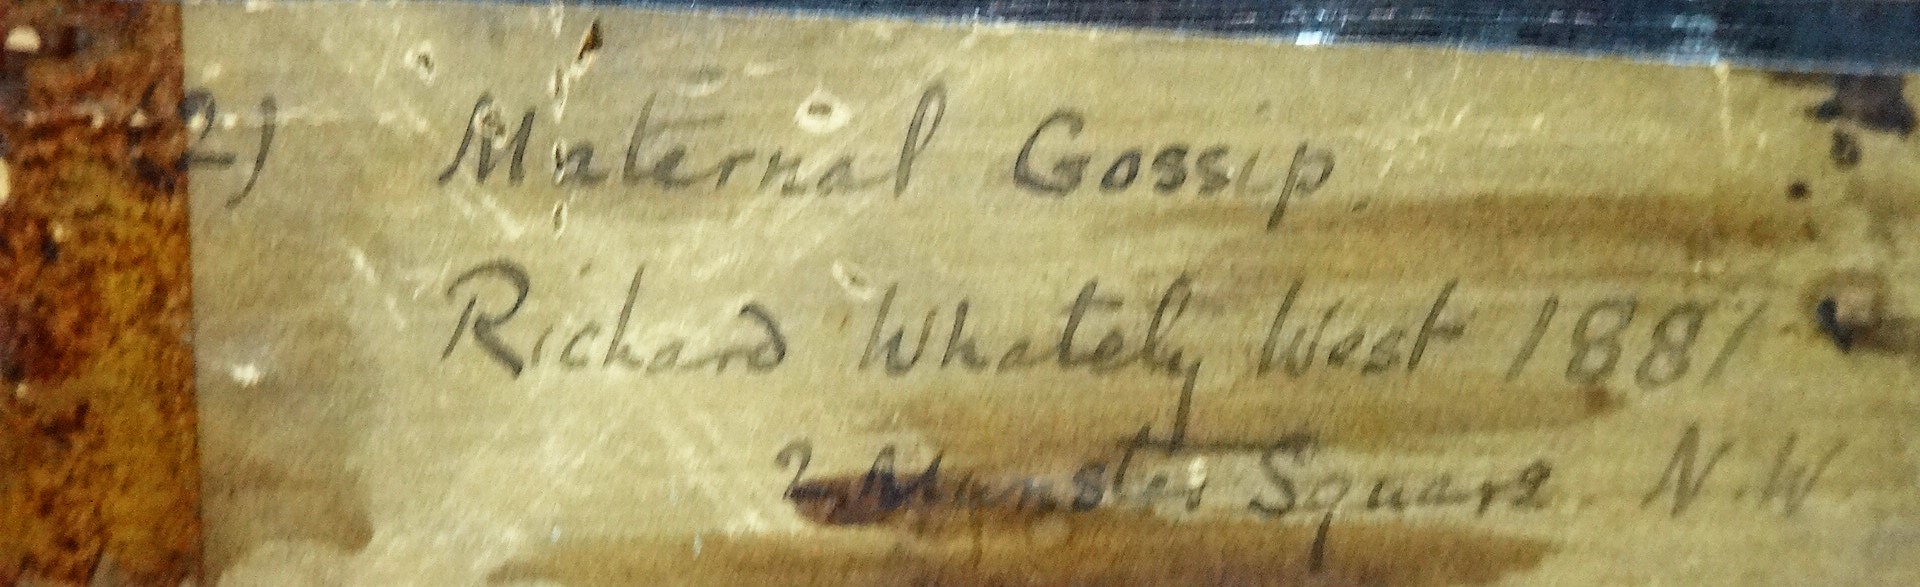 2) Maternal Gossip.
Richard Whately West 1887
2 Munster Square N.W